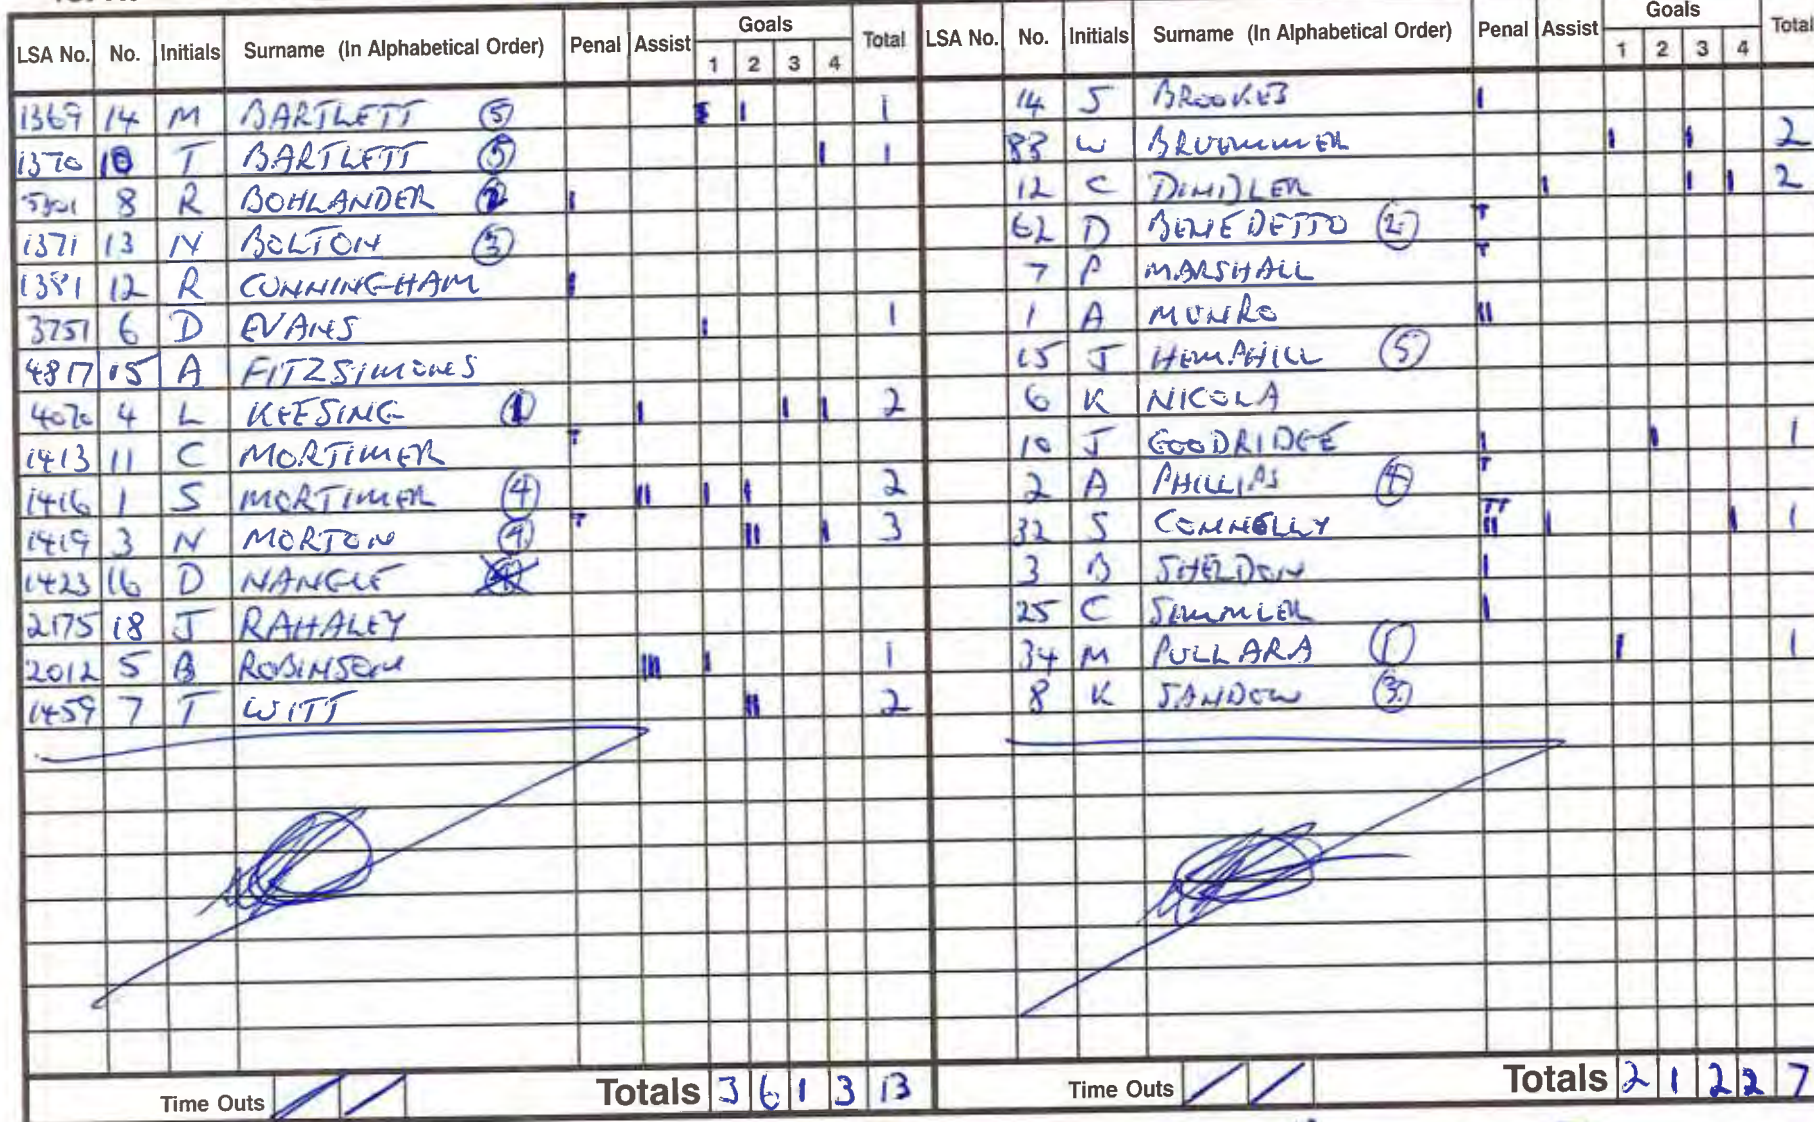 LSA No. No. Initials Surname (In Alphabetical Order) Penal Assist Goals 1 2 3 4 Total
1369 14 M BARTLETT (5) I I 1
1370 10 T BARTLETT (5) I 1
8 R BOHLANDER (2) I
1371 13 N BOLTON (3)
1381 12 R CUNNINGHAM I
3751 6 D EVANS I 1
4817 15 A FITZSIMONES
4020 4 L KEESING (1) I I I 2
1413 11 C MORTIMER T
1416 1 S MORTIMER (4) II I I 2
1419 3 N MORTON (4) T II I 3
1423 16 D NANGLE
2175 18 J RAHALEY
2012 5 B ROBINSON III I 1
1459 7 T WITT II 2
Time Outs / / Totals 3 6 1 3 13
LSA No. No. Initials Surname (In Alphabetical Order) Penal Assist Goals 1 2 3 4 Total
14 S BROOKES I
83 W BRUEMMER I I 2
12 C DINDLER I I I 2
62 D BENEDETTO (2) T
7 P MARSHALL T
1 A MUNRO II
15 J HEMPHILL (5)
6 K NICOLA
10 J GOODRIDGE I I 1
2 A PHILLIPS (4) T
32 S CONNOLLY TT II I I 1
3 B SHELDON I
25 C SIMMLER I
34 M PULLARA (1) I 1
8 K SANDOW (3)
Time Outs / / Totals 2 1 2 2 7